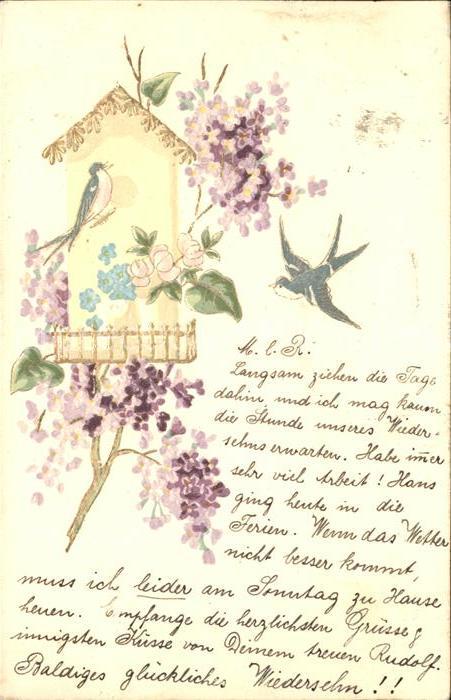 M. l. R.
Langsam ziehen die Tage
dahin und ich mag kaum
die Stunde unseres Wieder-
sehns erwarten. Habe im̅er
sehr viel Arbeit! Hans
ging heute in die
Ferien. Wenn das Wetter
nicht besser kommt,
muss ich leider am Sonntag zu Hause
heuen. Empfange die herzlichsten Grüsse &
innigsten Küsse von Deinem treuen Rudolf.
Baldiges glückliches Wiedersehn!!